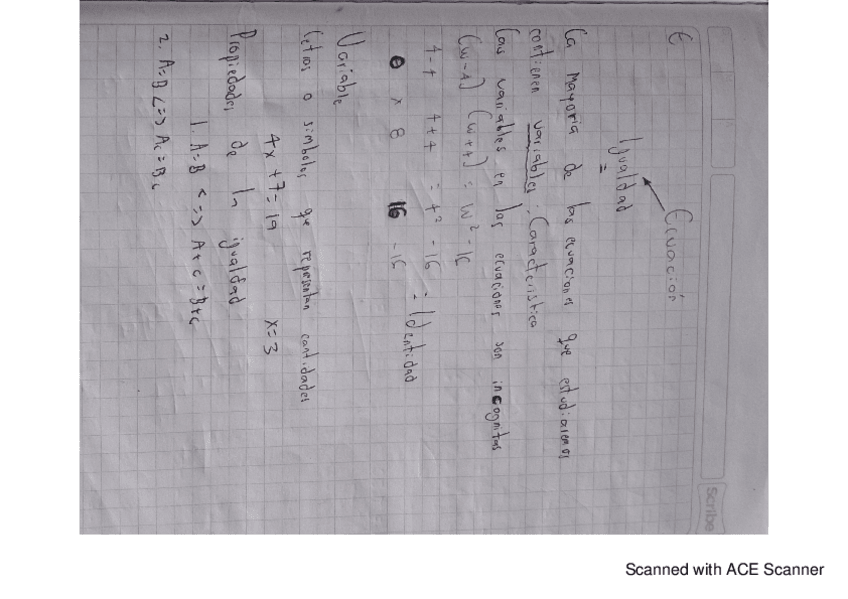 E
Ecuación
Igualdad
=
La mayoria de las ecuaciones que estudiaremos
contienen variables; Caracteristica
Las variables en las ecuaciones son incognitas
(w-4) (w+4) = w² - 16
4-4 4+4 = 4² - 16 = Identidad
0 x 8 16 - 16
Variable
Letras o simbolos que representan cantidades
4x + 7 = 19 x = 3
Propiedades de la igualdad
1. A=B <=> A+C = B+C
2. A=B <=> AC = BC
Scribe
Scanned with ACE Scanner